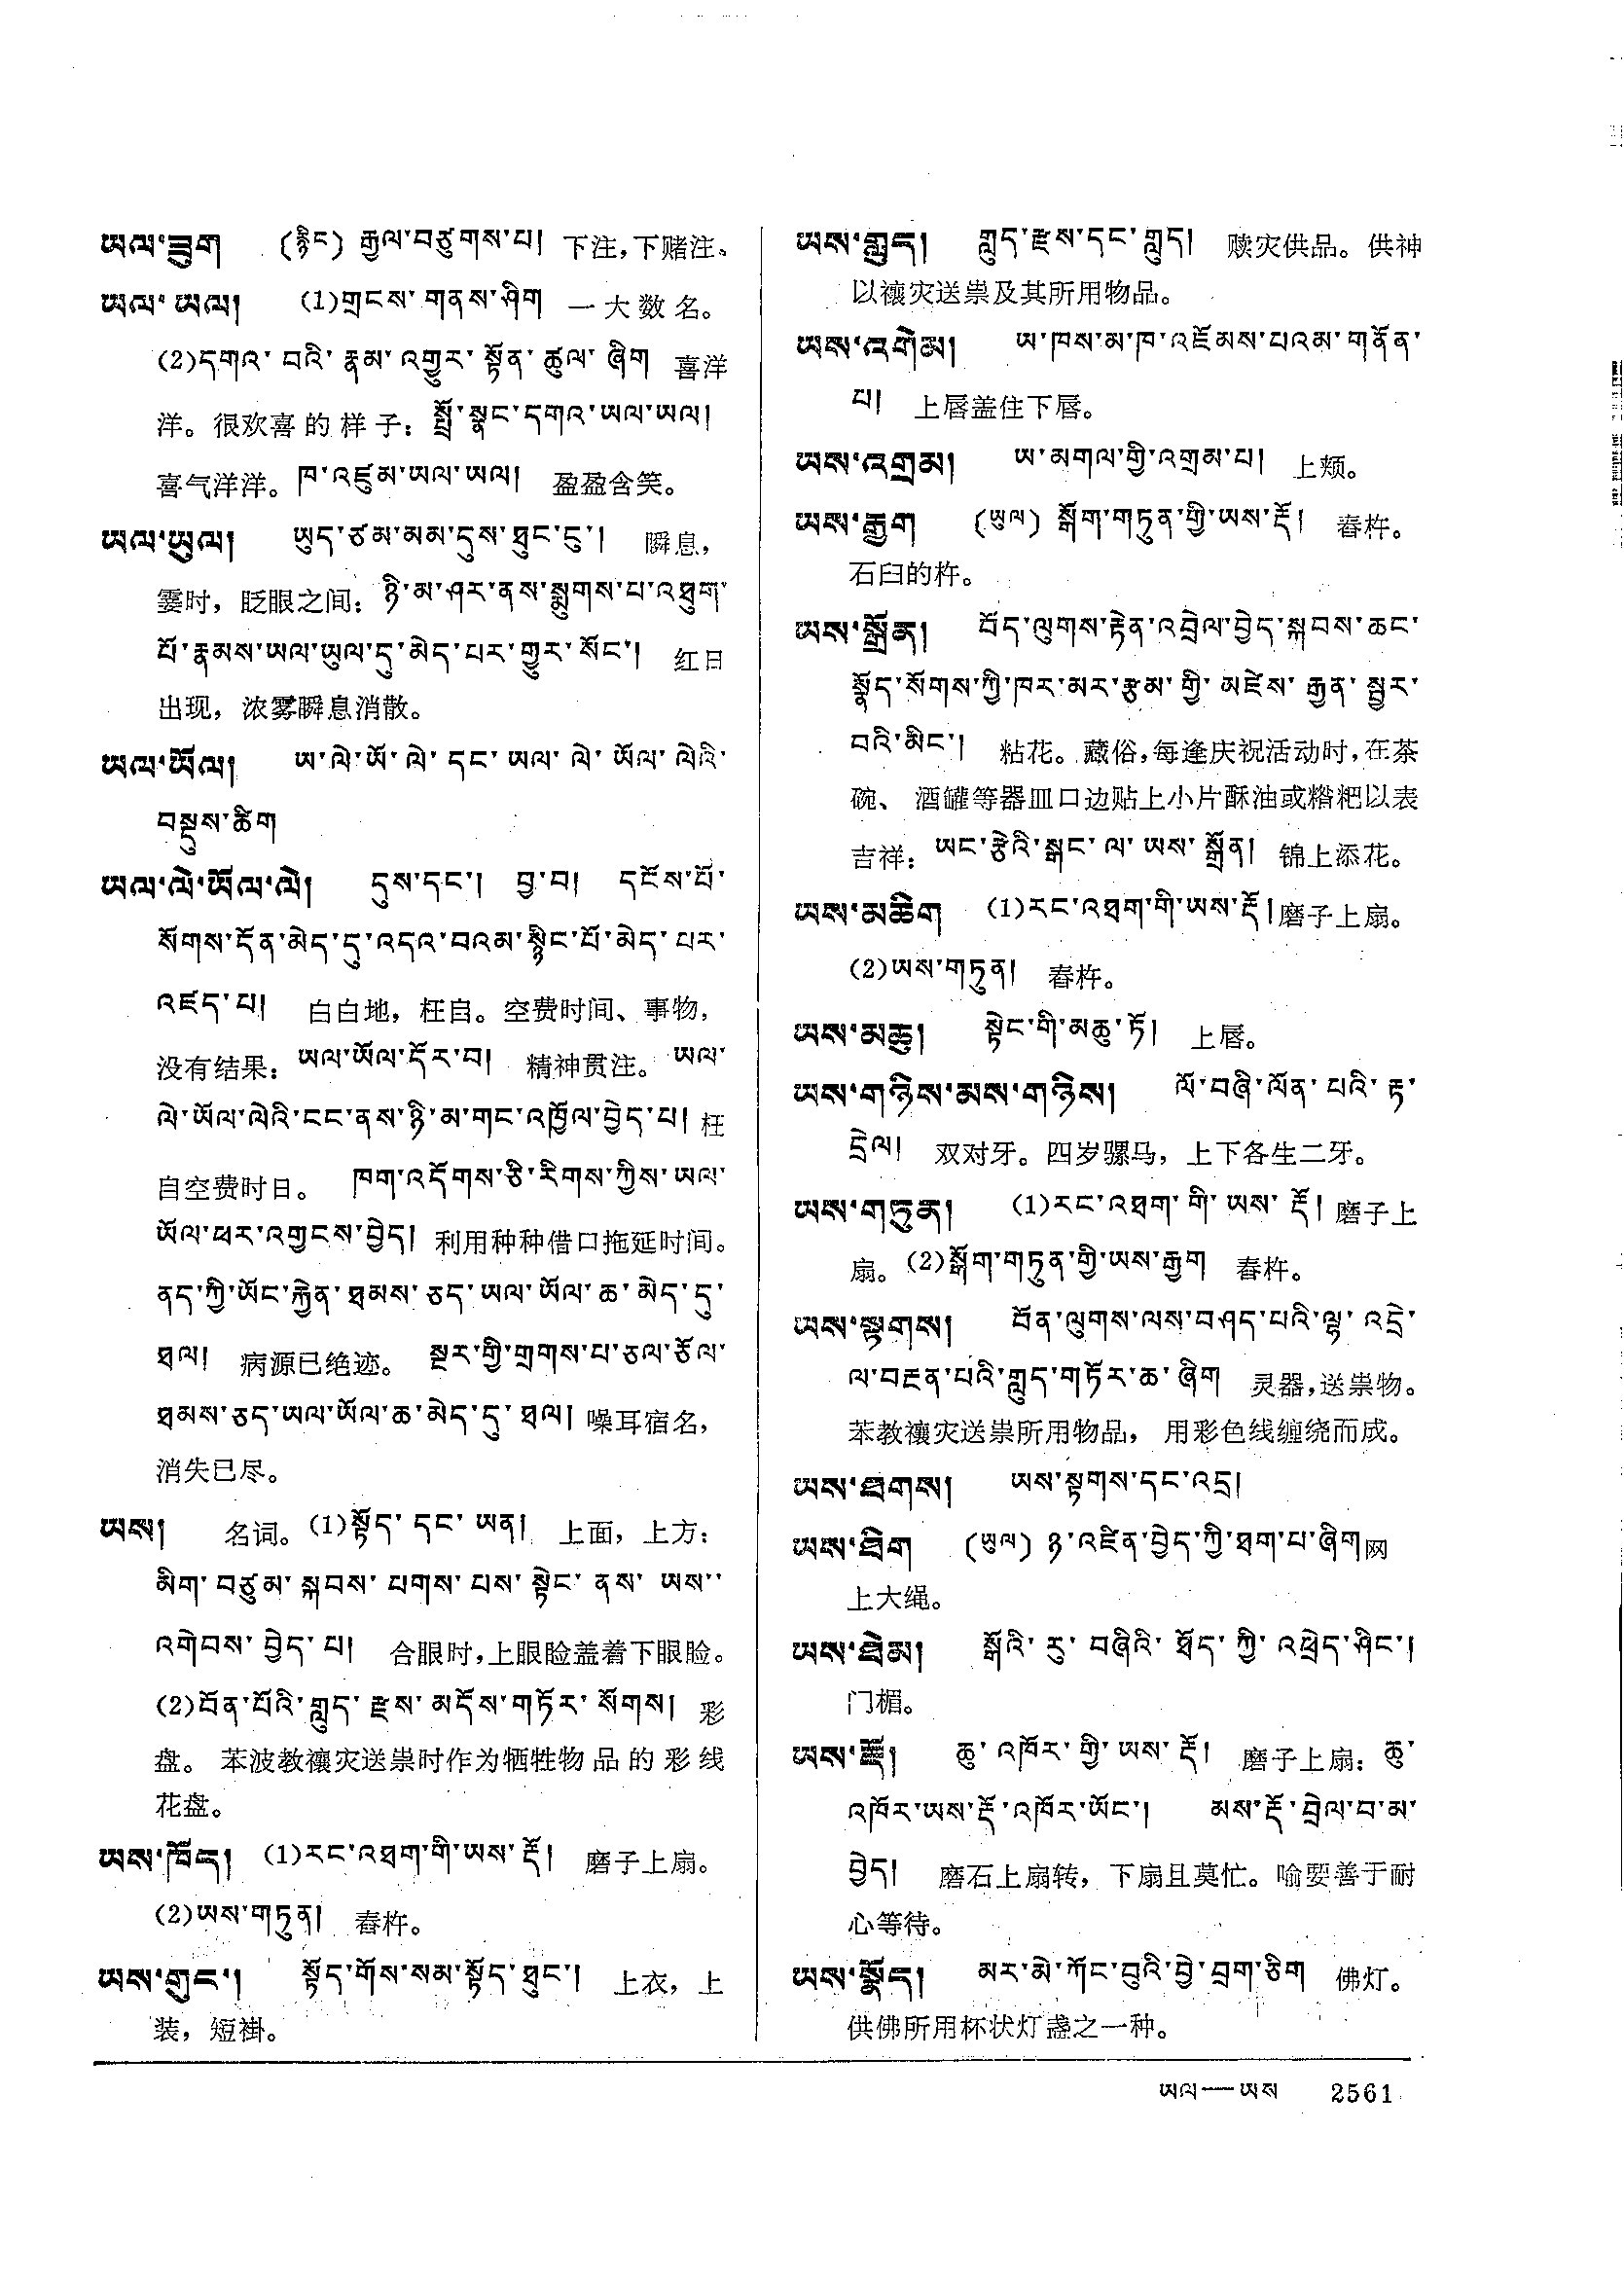 ཡལ་ཟུག (རྙིང) རྒྱལ་བཙུགས་པ། 下注，下赌注。
ཡལ་ཡལ། (1)གྲངས་གནས་ཤིག 一大数名。
(2)དགའ་བའི་རྣམ་འགྱུར་སྟོན་ཚུལ་ཞིག 喜洋
洋。很欢喜的样子：སྤྲོ་སྣང་དགའ་ཡལ་ཡལ།
喜气洋洋。ཁ་འཛུམ་ཡལ་ཡལ། 盈盈含笑。
ཡལ་ཡུལ། ཡུད་ཙམ་མམ་དུས་ཐུང་ངུ་། 瞬息，
霎时，眨眼之间：ཉི་མ་ཤར་ནས་སྨུགས་པ་འཐུག་
པོ་རྣམས་ཡལ་ཡུལ་དུ་མེད་པར་གྱུར་སོང་། 红日
出现，浓雾瞬息消散。
ཡལ་ཡོལ། ཡ་ལེ་ཡོ་ལེ་དང་ཡལ་ལེ་ཡོལ་ལེའི་
བསྡུས་ཚིག
ཡལ་ལེ་ཡོལ་ལེ། དུས་དང་། བྱ་བ། དངོས་པོ་
སོགས་དོན་མེད་དུ་འདའ་བའམ་སྙིང་པོ་མེད་པར་
འཛད་པ། 白白地，枉自。空费时间、事物，
没有结果：ཡལ་ཡོལ་དོར་བ། 精神贯注。ཡལ་
ལེ་ཡོལ་ལེའི་ངང་ནས་ཉི་མ་གང་འཁྱོལ་བྱེད་པ། 枉
自空费时日。 ཁག་འདོགས་ཅི་རིགས་ཀྱིས་ཡལ་
ཡོལ་ཕར་འགྱངས་བྱེད། 利用种种借口拖延时间。
ནད་ཀྱི་ཡོང་རྐྱེན་ཐམས་ཅད་ཡལ་ཡོལ་ཆ་མེད་དུ་
ཐལ། 病源已绝迹。 སྔར་གྱི་གྲགས་པ་ཅལ་ཅོལ་
ཐམས་ཅད་ཡལ་ཡོལ་ཆ་མེད་དུ་ཐལ། 噪耳宿名，
消失已尽。
ཡས། 名词。(1)སྟོད་དང་ཡན། 上面，上方：
མིག་བཙུམ་སྐབས་པགས་པས་སྟེང་ནས་ཡས་་
འགེབས་བྱེད་པ། 合眼时，上眼睑盖着下眼睑。
(2)བོན་པོའི་གླུད་རྫས་མདོས་གཏོར་སོགས། 彩
盘。苯波教禳灾送祟时作为牺牲物品的彩线
花盘。
ཡས་ཁོད། (1)རང་འཐག་གི་ཡས་རྡོ། 磨子上扇。
(2)ཡས་གཏུན། 舂杵。
ཡས་གྲུང་། སྟོད་གོས་སམ་སྟོད་ཐུང་། 上衣，上
装，短褂。
ཡས་གླུད། གླུད་རྫས་དང་གླུད། 赎灾供品。供神
以禳灾送祟及其所用物品。
ཡས་འགེམ། ཡ་ཁས་མ་ཁ་འཇོམས་པའམ་གནོན་
པ། 上唇盖住下唇。
ཡས་འགྲམ། ཡ་མགལ་གྱི་འགྲམ་པ། 上颊。
ཡས་རྒྱུག (ཡུལ) སྒོག་གཏུན་གྱི་ཡས་རྡོ། 舂杵。
石臼的杵。
ཡས་སྒྲོན། བོད་ལུགས་རྟེན་འབྲེལ་བྱེད་སྐབས་ཆང་
སྣོད་སོགས་ཀྱི་ཁར་མར་རྩམ་གྱི་མཛེས་རྒྱན་སྦྱར་
བའི་མིང་། 粘花。藏俗，每逢庆祝活动时，在茶
碗、酒罐等器皿口边贴上小片酥油或糌粑以表
吉祥：ཡང་རྩེའི་སྒང་ལ་ཡས་སྒྲོན། 锦上添花。
ཡས་མཆིག (1)རང་འཐག་གི་ཡས་རྡོ། 磨子上扇。
(2)ཡས་གཏུན། 舂杵。
ཡས་མཆུ། སྟེང་གི་མཆུ་ཏོ། 上唇。
ཡས་གཉིས་མས་གཉིས། ལོ་བཞི་ལོན་པའི་རྟ་
དྲེལ། 双对牙。四岁骡马，上下各生二牙。
ཡས་གཏུན། (1)རང་འཐག་གི་ཡས་རྡོ། 磨子上
扇。(2)སྒོག་གཏུན་གྱི་ཡས་རྒྱུག 舂杵。
ཡས་སྟགས། བོན་ལུགས་ལས་བཤད་པའི་ལྷ་འདྲེ་
ལ་བརྔན་པའི་གླུད་གཏོར་ཆ་ཞིག 灵器，送祟物。
苯教禳灾送祟所用物品，用彩色线缠绕而成。
ཡས་ཐགས། ཡས་སྟགས་དང་འདྲ།
ཡས་ཐིག (ཡུལ) ཉ་འཛིན་བྱེད་ཀྱི་ཐག་པ་ཞིག 网
上大绳。
ཡས་ཐེམ། སྒོའི་རུ་བཞིའི་ཐོད་ཀྱི་འཕྲེད་ཤིང་།
门楣。
ཡས་རྡོ། ཆུ་འཁོར་གྱི་ཡས་རྡོ། 磨子上扇：ཆུ་
འཁོར་ཡས་རྡོ་འཁོར་ཡོང་། མས་རྡོ་བྲེལ་བ་མ་
བྱེད། 磨石上扇转，下扇且莫忙。喻要善于耐
心等待。
ཡས་སྣོད། མར་མེ་ཀོང་བུའི་བྱེ་བྲག་ཅིག 佛灯。
供佛所用杯状灯盏之一种。
ཡལ—ཡས 2561